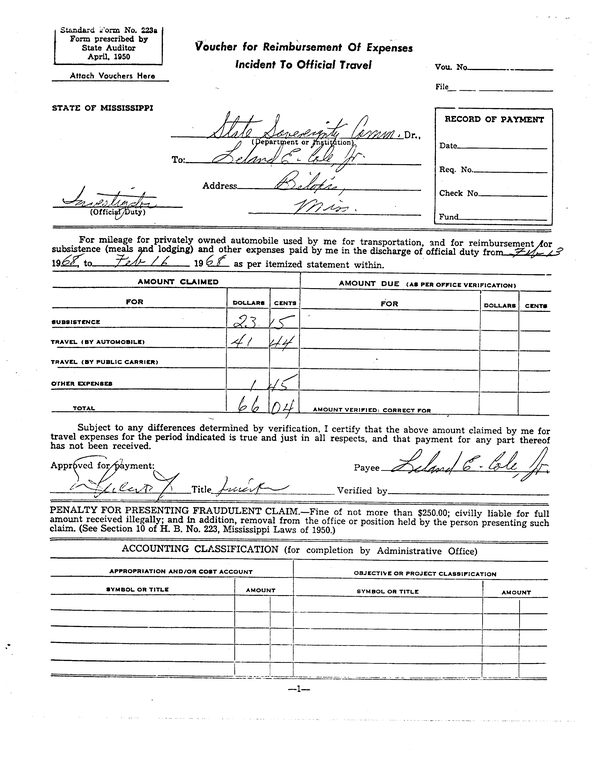 Standard Form No. 223a
Form prescribed by
State Auditor
April, 1950
Attach Vouchers Here
Voucher for Reimbursement Of Expenses
Incident To Official Travel
Vou. No.
File
STATE OF MISSISSIPPI
RECORD OF PAYMENT
Date
Req. No.
Check No.
Fund
State Sovereignty Comm. Dr.,
(Department or Institution)
To: Leland E. Cole, Jr.
Address Biloxi,
Miss.
Investigator
(Official Duty)
For mileage for privately owned automobile used by me for transportation, and for reimbursement for
subsistence (meals and lodging) and other expenses paid by me in the discharge of official duty from Feb 13
1968 to Feb 16 1968 as per itemized statement within.
AMOUNT CLAIMED AMOUNT DUE (AS PER OFFICE VERIFICATION)
FOR DOLLARS CENTS FOR DOLLARS CENTS
SUBSISTENCE 23 15
TRAVEL (BY AUTOMOBILE) 41 44
TRAVEL (BY PUBLIC CARRIER)
OTHER EXPENSES 1 45
TOTAL 66 04 AMOUNT VERIFIED: CORRECT FOR
Subject to any differences determined by verification, I certify that the above amount claimed by me for
travel expenses for the period indicated is true and just in all respects, and that payment for any part thereof
has not been received.
Approved for payment:
Payee Leland E. Cole, Jr.
Title
Verified by
PENALTY FOR PRESENTING FRAUDULENT CLAIM.—Fine of not more than $250.00; civilly liable for full
amount received illegally; and in addition, removal from the office or position held by the person presenting such
claim. (See Section 10 of H. B. No. 223, Mississippi Laws of 1950.)
ACCOUNTING CLASSIFICATION (for completion by Administrative Office)
APPROPRIATION AND/OR COST ACCOUNT OBJECTIVE OR PROJECT CLASSIFICATION
SYMBOL OR TITLE AMOUNT SYMBOL OR TITLE AMOUNT
—1—